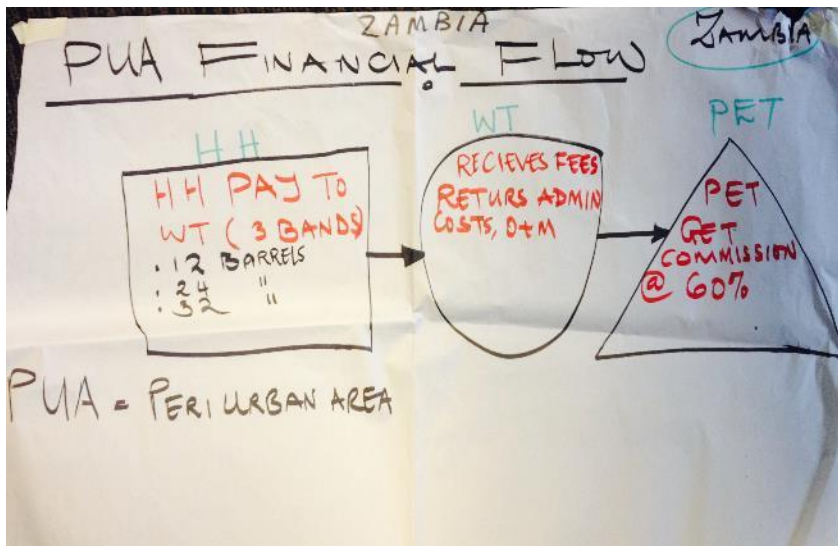 ZAMBIA
ZAMBIA
PUA FINANCIAL FLOW
HH
HH PAY TO
WT (3 BANDS)
. 12 BARRELS
. 24 "
. 32 "
WT
RECIEVES FEES
RETURS ADMIN
COSTS, O+M
PET
PET
GET
COMMISSION
@ 60%
PUA = PERI URBAN AREA